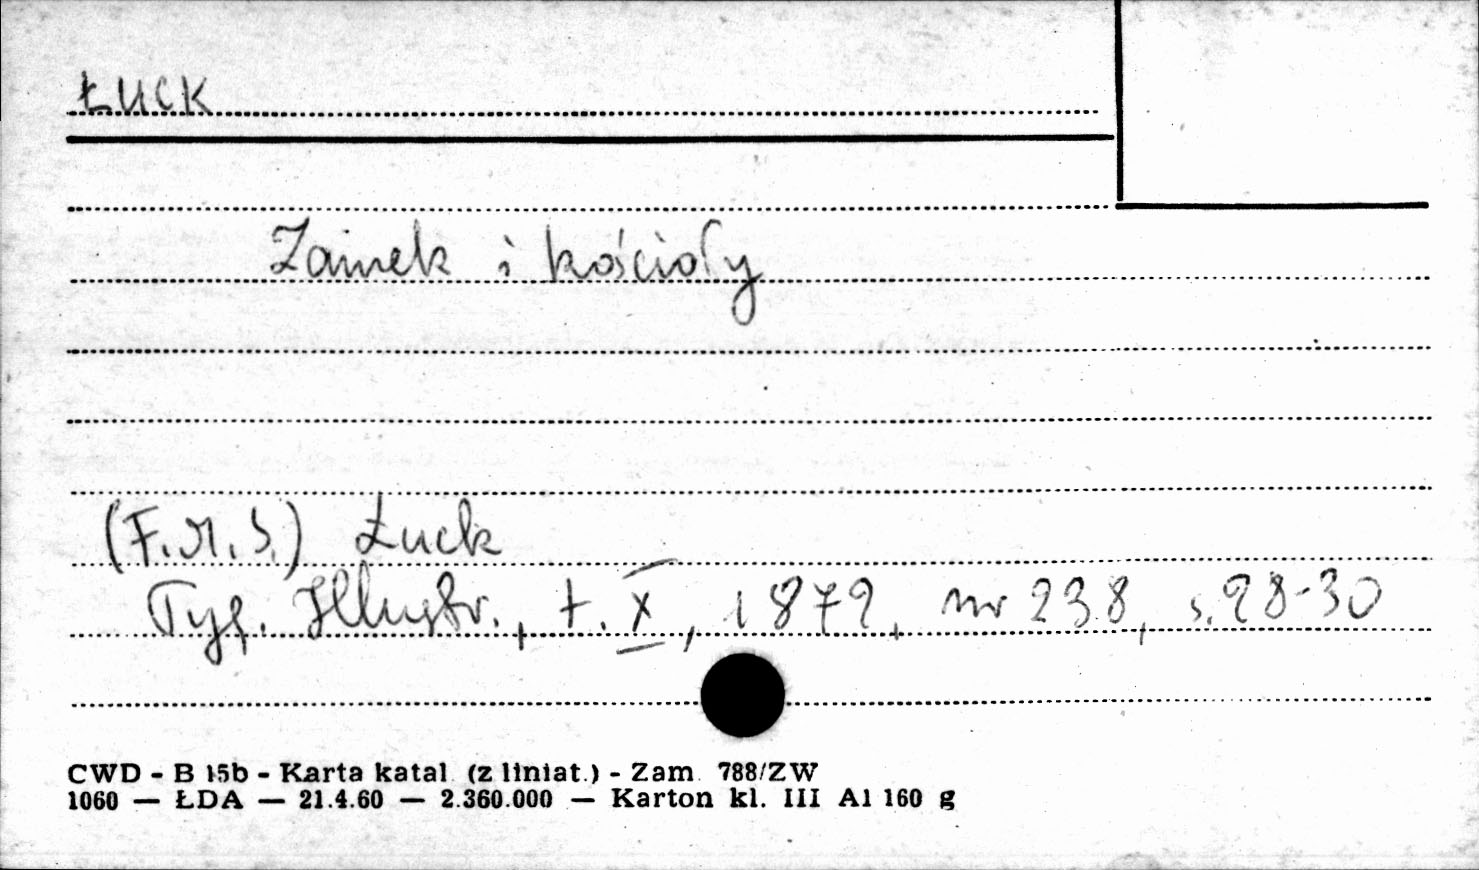 ŁUCK
Zamek i kościoły
(F.M.S.) Łuck
Tyg. Illustr., t. X, 1872, nr 238, s. 28-30
CWD - B 15b - Karta katal. (z liniat.) - Zam. 788/ZW
1060 — ŁDA — 21.4.60 — 2.360.000 — Karton kl. III A1 160 g